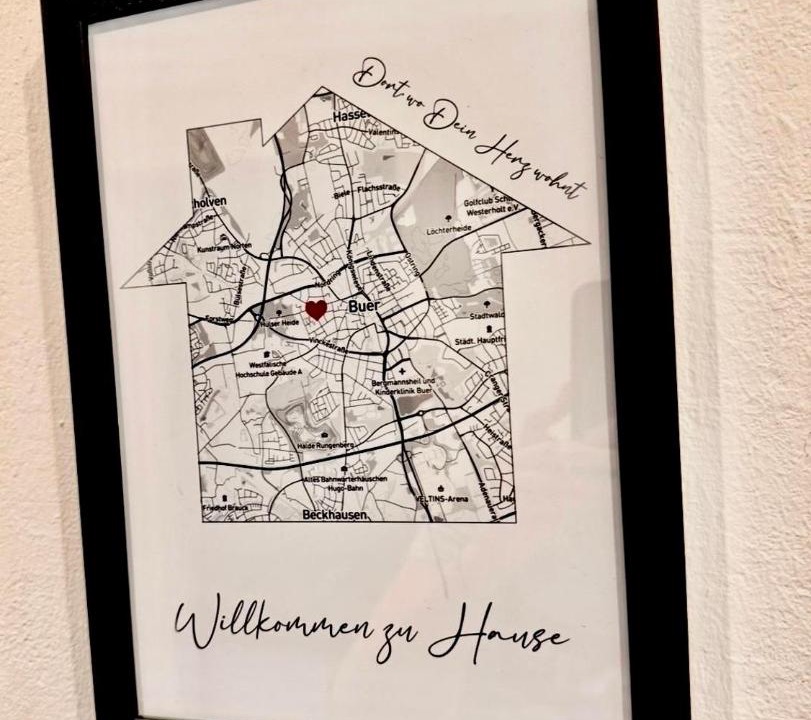 Dort wo Dein Herz wohnt
Hassel
Valentin
holven
Biele
Flachsstraße
Golfclub Schl
Westerholt e.V.
Löchterheide
Kunstraum Norten
Ostring
Buer
Forstweg
Hülser Heide
Stadtwald
Vinckestraße
Städt. Hauptfri
Westfälische
Hochschule Gebäude A
Bergmannsheil und
Kinderklinik Buer
Halde Rungenberg
Altes Bahnwärterhäuschen
Hugo-Bahn
VELTINS-Arena
Friedhof Brauck
Beckhausen
Willkommen zu Hause